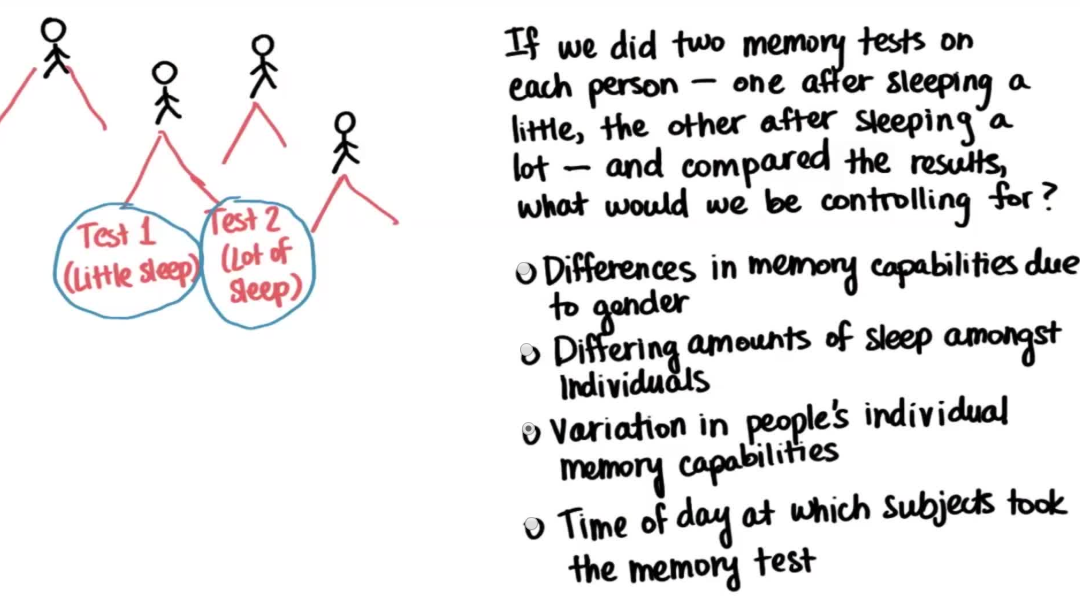 If we did two memory tests on
each person – one after sleeping a
little, the other after sleeping a
lot – and compared the results,
what would we be controlling for?
Test 1
(Little sleep)
Test 2
(Lot of
sleep)
Differences in memory capabilities due
to gender
Differing amounts of sleep amongst
individuals
Variation in people's individual
memory capabilities
Time of day at which subjects took
the memory test